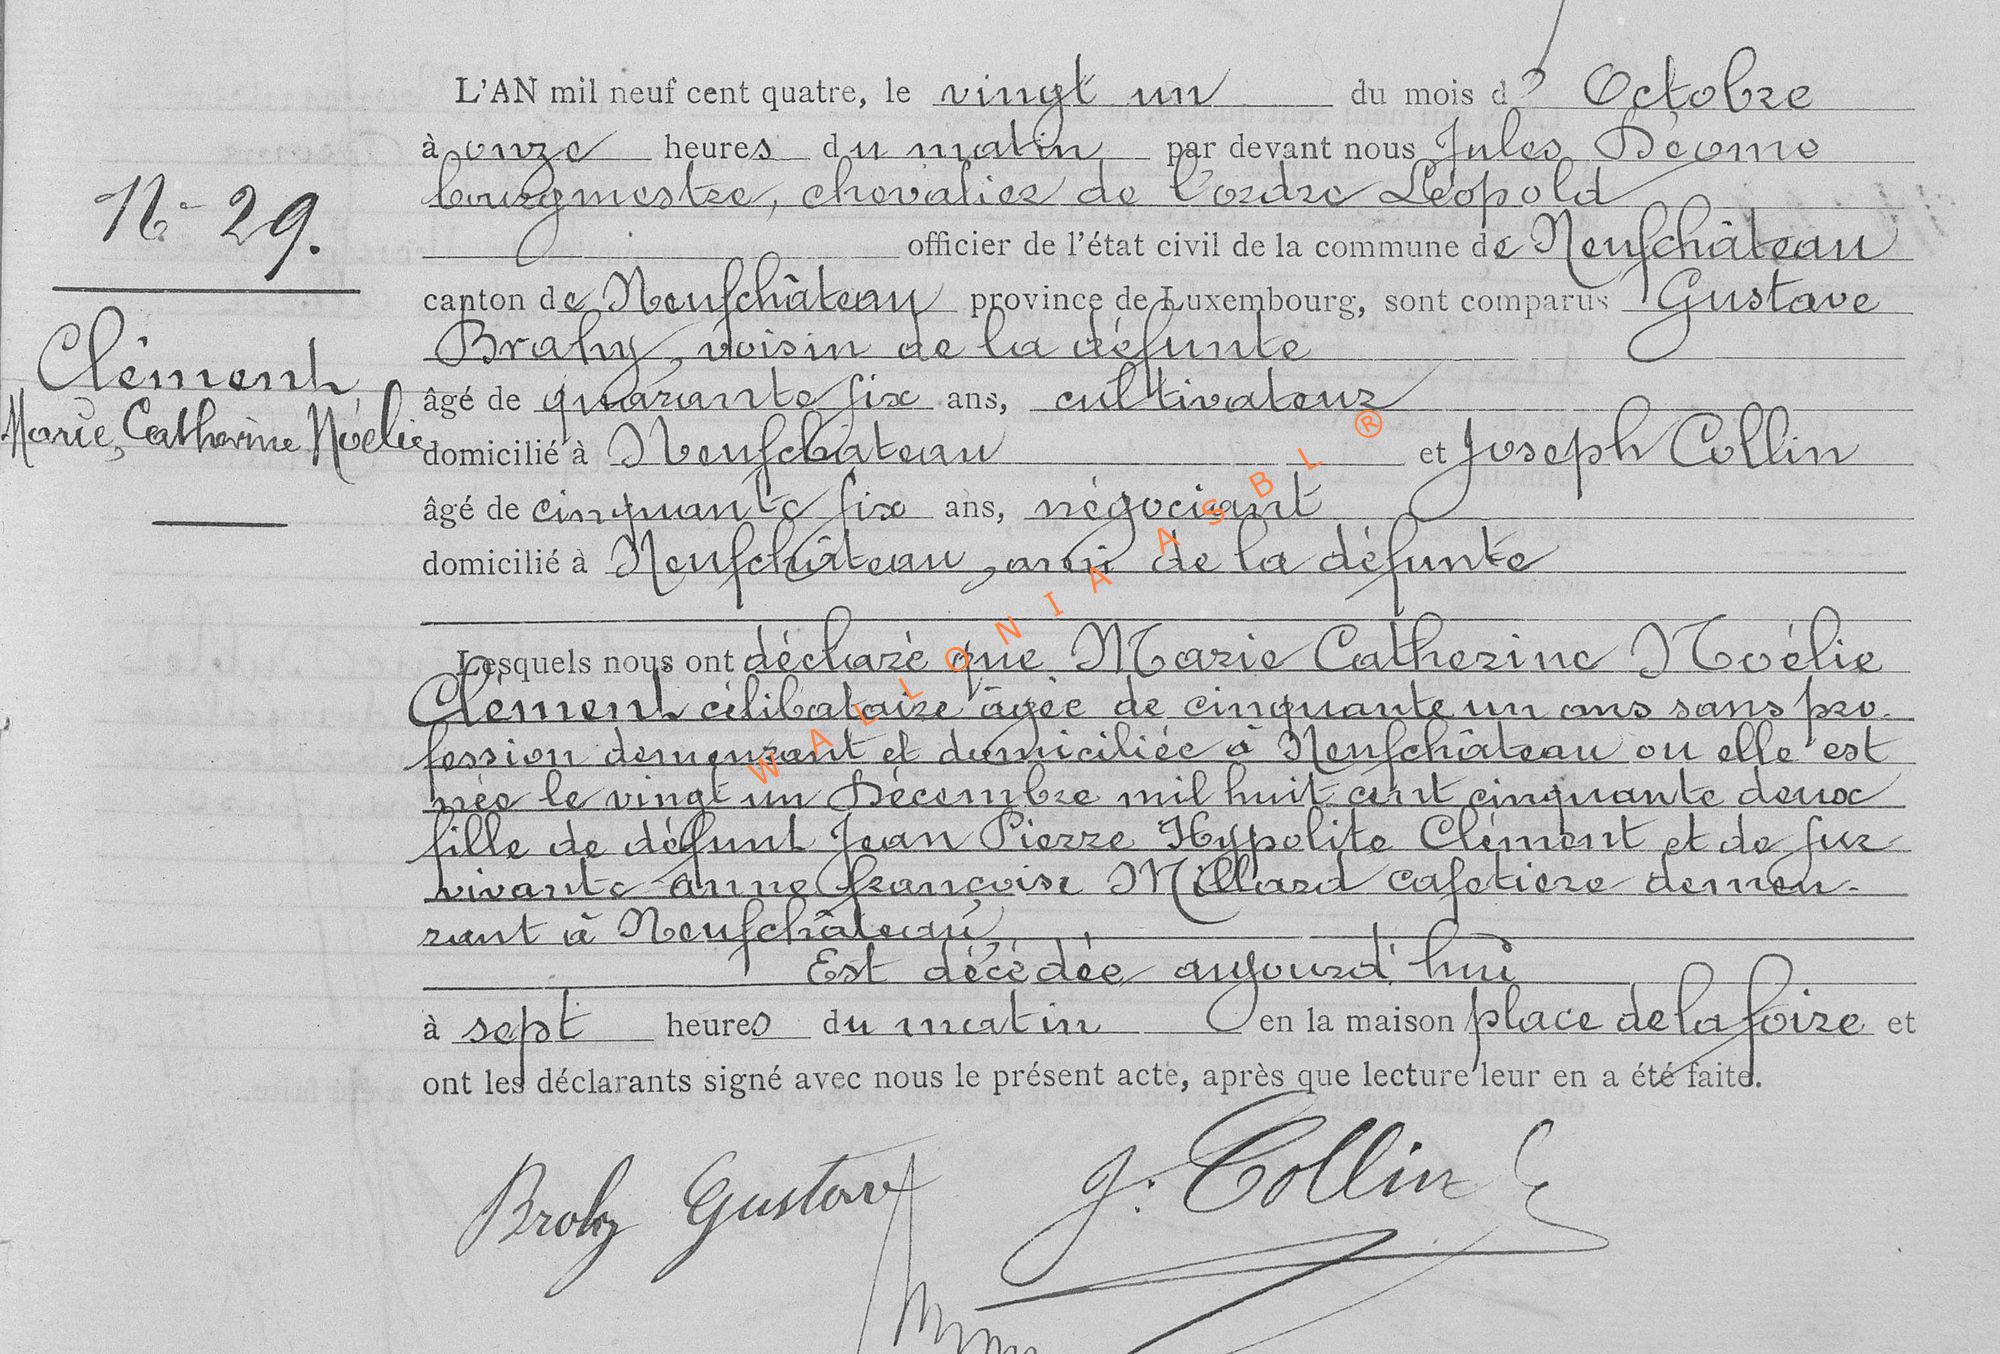 L'AN mil neuf cent quatre, le vingt un du mois d'Octobre
à onze heures du matin par devant nous Jules Déome
bourgmestre, chevalier de l'ordre Léopold
N° 29.
officier de l'état civil de la commune de Neufchâteau
canton de Neufchâteau province de Luxembourg, sont comparus Gustave
Brahy, voisin de la défunte
Clément
âgé de quarante six ans, cultivateur
Marie, Catherine Noélie
domicilié à Neufchateau et Joseph Collin
âgé de cinquante six ans, négociant
domicilié à Neufchâteau, ami de la défunte
Lesquels nous ont déclaré que Marie Catherine Noélie
Clément célibataire âgée de cinquante un ans sans pro-
fession demeurant et domiciliée à Neufchâteau ou elle est
née le vingt un Décembre mil huit cent cinquante deux
fille de défunt Jean Pierre Hypolite Clément et de sur
vivante anne françoise Millard cafetiere demeu-
rant à Neufchâteau
Est décédée aujourd'hui
à sept heures du matin en la maison place de la foire et
ont les déclarants signé avec nous le présent acte, après que lecture leur en a été faite.
Brahy Gustave J. Collin
WALLONIA ASBL ®